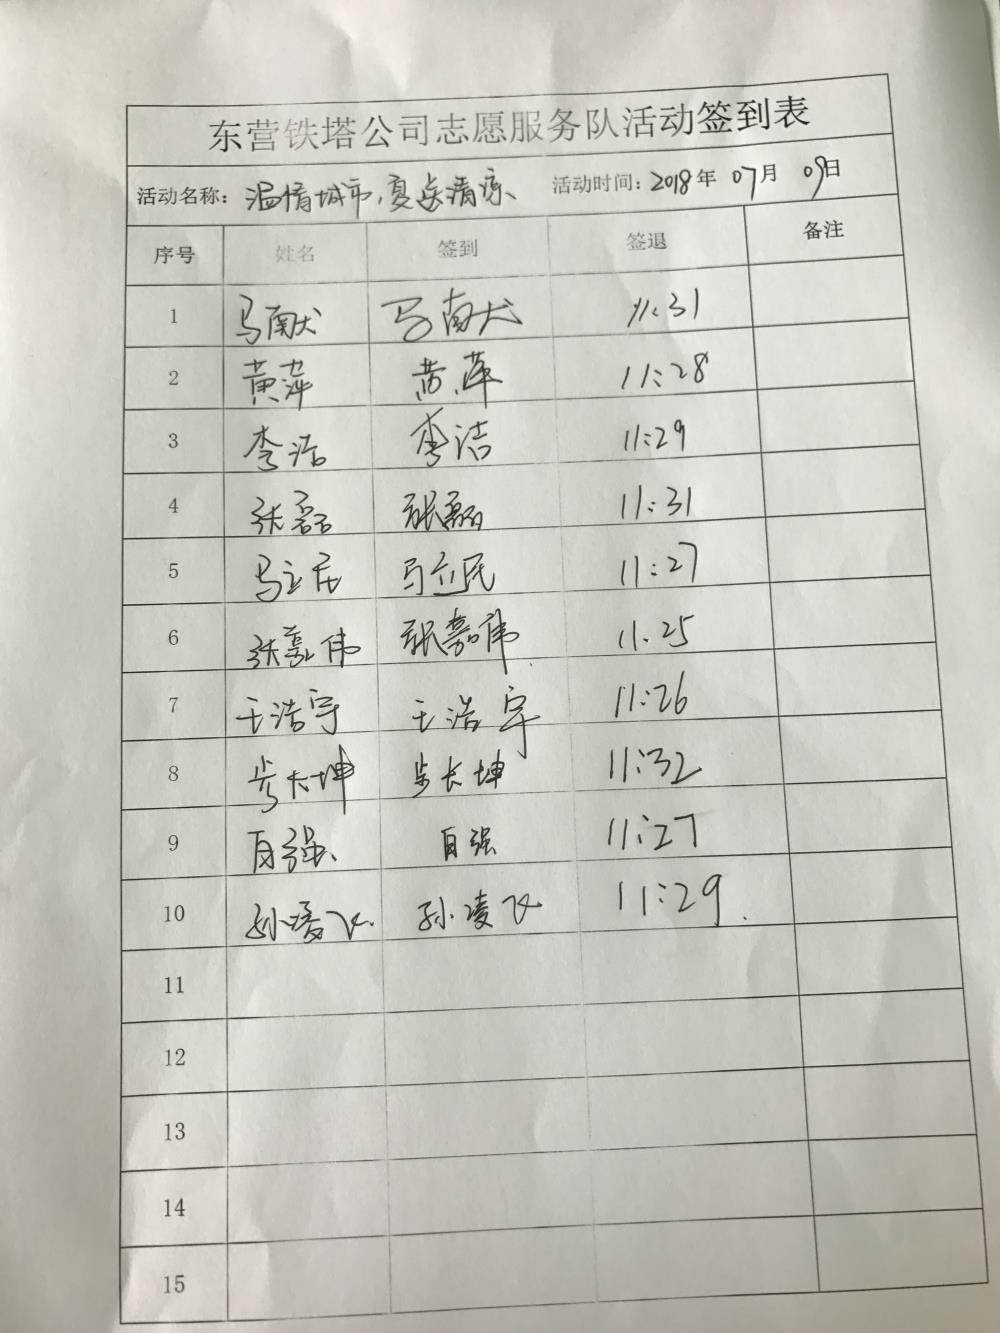 东营铁塔公司志愿服务队活动签到表
活动名称：温情城市，夏送清凉 活动时间：2018年 07月 09日
序号 姓名 签到 签退 备注
1 马南犬 马南犬 11:31
2 黄萍 黄萍 11:28
3 李洁 李洁 11:29
4 张磊 张磊 11:31
5 马立民 马立民 11:27
6 张嘉伟 张嘉伟 11.25
7 王浩宇 王浩宇 11:26
8 步长坤 步长坤 11:32
9 自强 自强 11:27
10 孙凌飞 孙凌飞 11:29
11
12
13
14
15